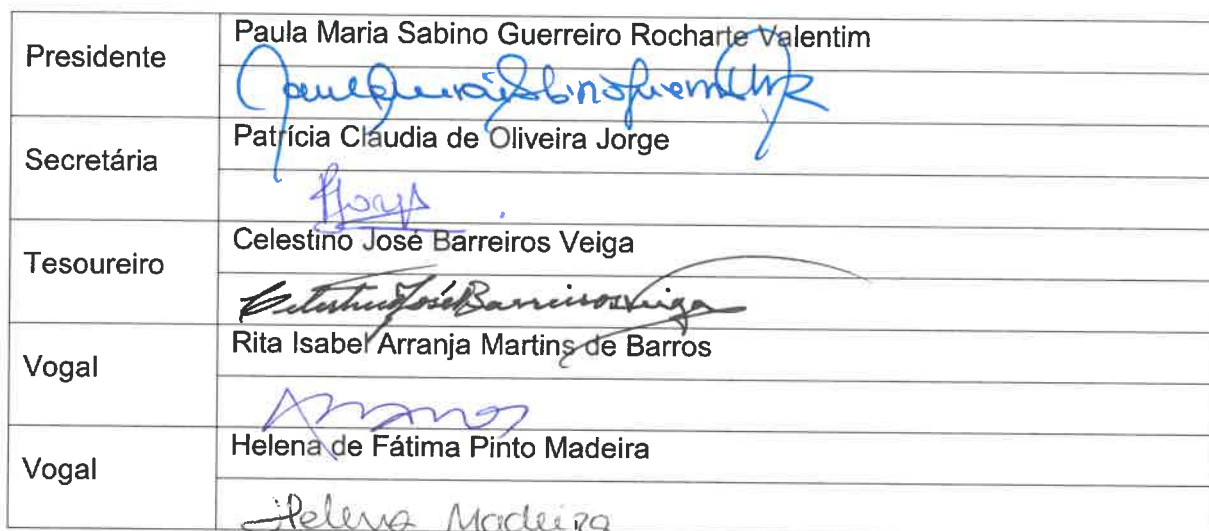 Presidente
Paula Maria Sabino Guerreiro Rocharte Valentim
Secretária
Patrícia Claudia de Oliveira Jorge
Tesoureiro
Celestino José Barreiros Veiga
Celestino José Barreiros Veiga
Vogal
Rita Isabel Arranja Martins de Barros
Vogal
Helena de Fátima Pinto Madeira
Helena Madeira